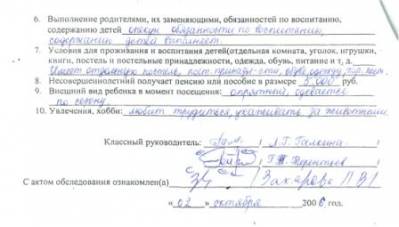 6. Выполнение родителями, их заменяющими, обязанностей по воспитанию,
содержанию детей опекун обязанности по воспитанию,
содержанию детей выполняет.
7. Условия для проживания и воспитания детей(отдельная комната, уголок, игрушки,
книги, постель и постельные принадлежности, одежда, обувь, питание и т, д.
Имеет отдельную постель, пост. обувь, одежду,
8. Несовершеннолетний получает пенсию или пособие в размере 5 000 руб.
9. Внешний вид ребенка в момент посещения: опрятный, одевается
по сезону.
10. Увлечения, хобби: любит трудиться, ухаживать за животными
Классный руководитель: / Л.Г. Галкина /
/ Г. /
С актом обследования ознакомлен(а) / Захарова /
«02» октября 2006 год.